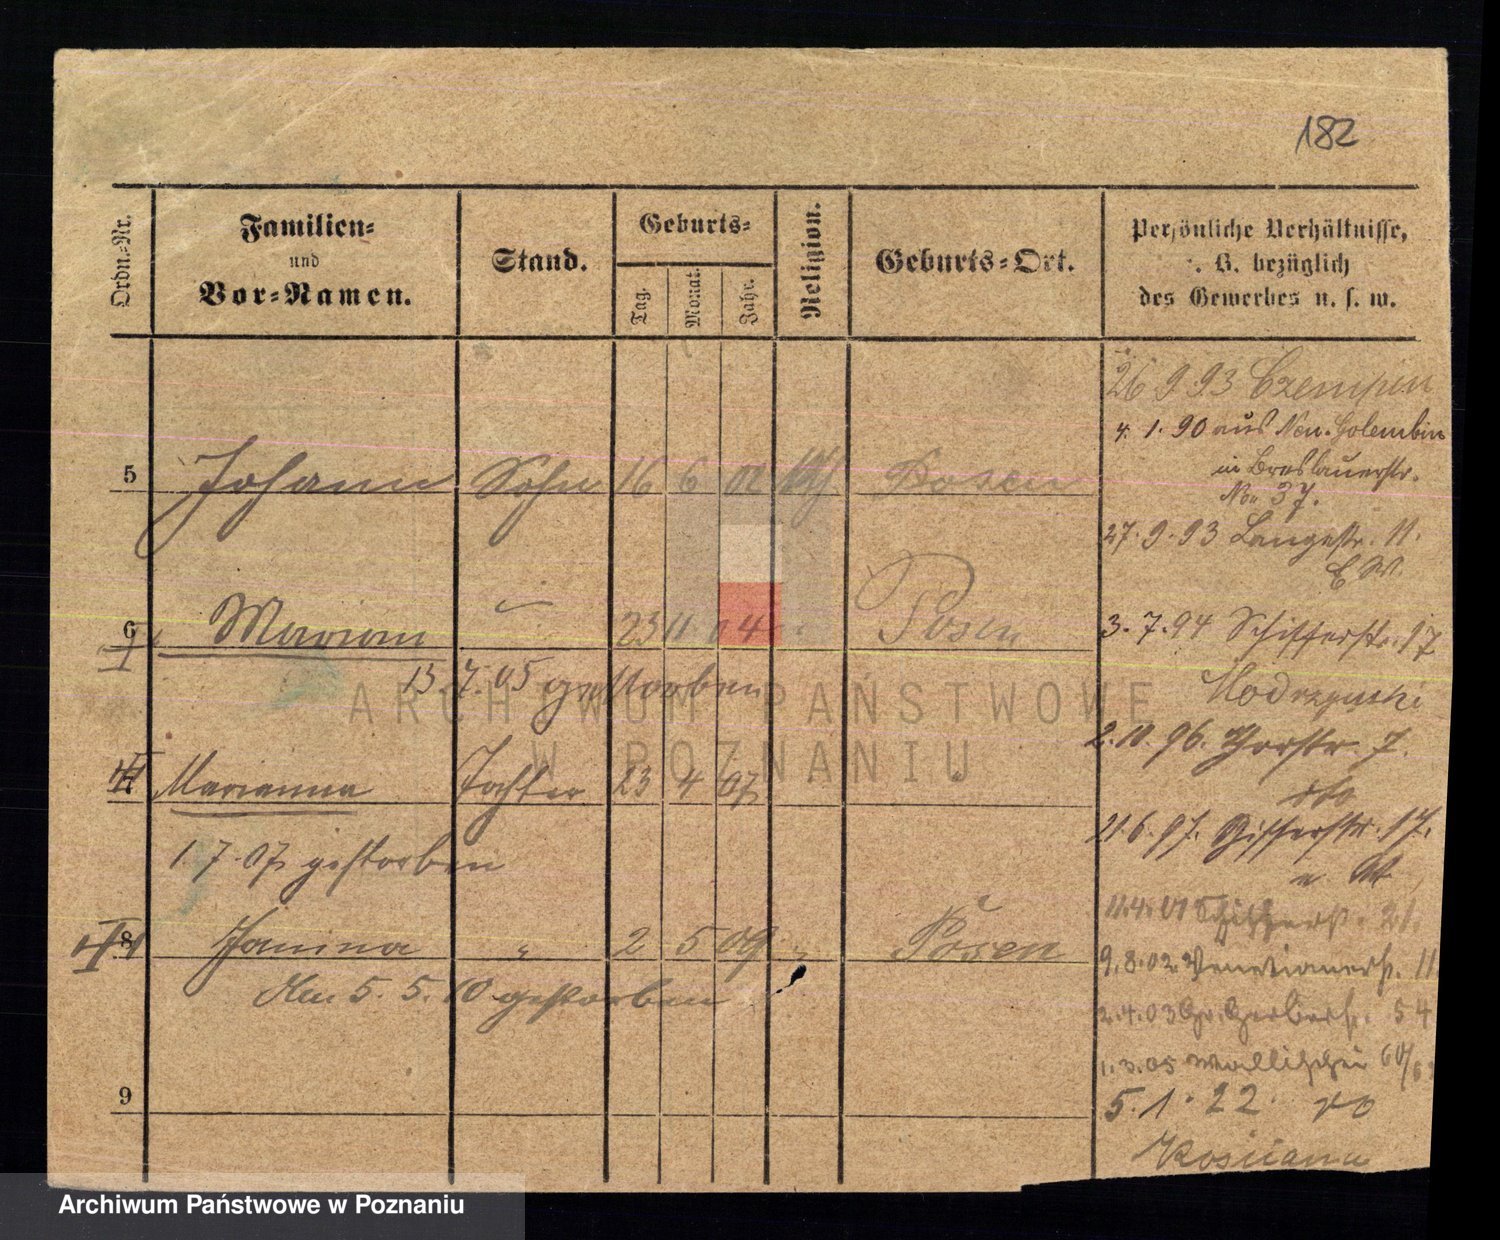 182
Ordn.-Nr.
Familien-
und
Vor-Namen.
Stand.
Geburts-
Tag.
Monat.
Jahr.
Religion.
Geburts-Ort.
Persönliche Verhältnisse,
. B. bezüglich
des Gewerbes u. s. w.
5 Johann Sohn 16 6 02 Posen
6 Marian 23 11 04 Posen
13.7.05 gestorben
7 Marianna Tochter 23 4 07 "
1.7.07 gestorben
8 Janina " 2 5 09 " Posen
den 5. 5. 10 gestorben
9
26 9 93 Czempin
4. 1. 90 aus Neu-Golembin
in Breslauerstr.
No. 37.
27. 9. 93 Langestr. 11.
3. 7. 94 Schifferstr. 17
2. 10. 96. 7.
21. 6. 97. Schifferstr. 17.
11.4.01 Schifferst. 21.
9. 8. 02. Venetianerst. 11
2. 4. 03 Gr. Gerberst. 54
1. 3. 05 Wallischei 60/6
5. 1. 22.
ARCHIWUM PAŃSTWOWE
W POZNANIU
Archiwum Państwowe w Poznaniu